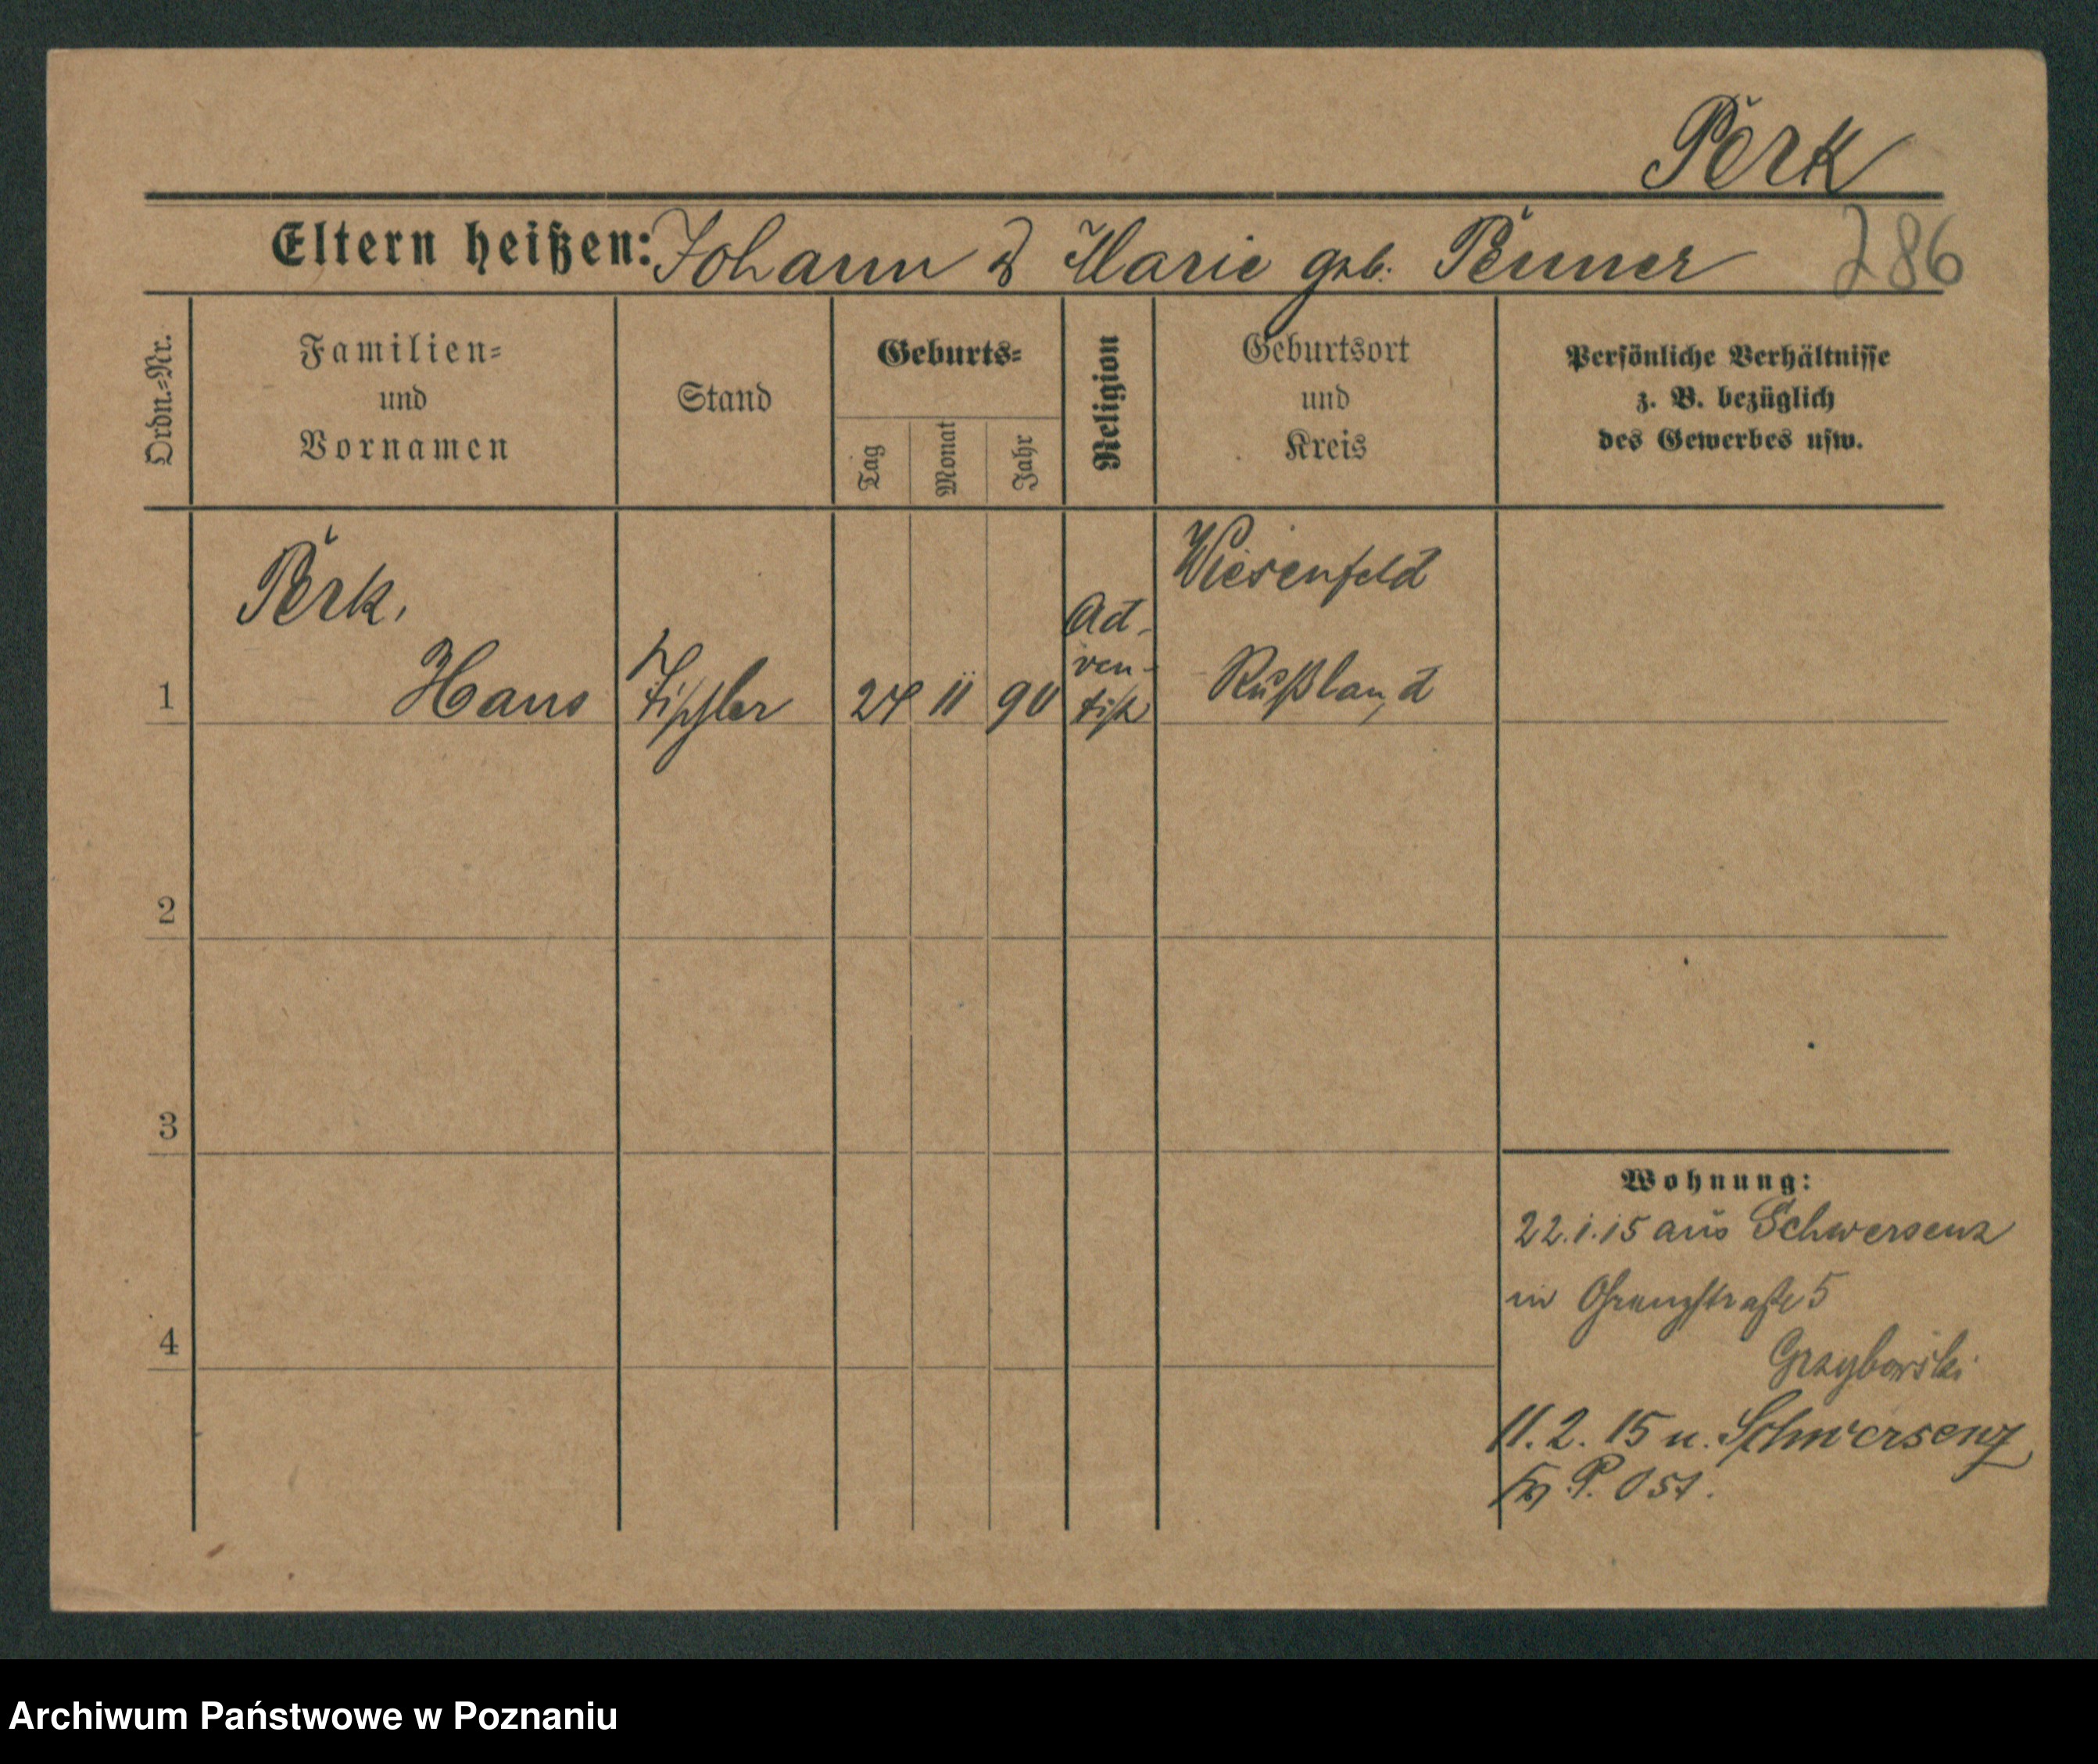 Perk
Eltern heißen: Johann & Marie geb. Penner 286
Ordn.=Nr.
Familien=
und
Vornamen
Stand
Geburts=
Tag
Monat
Jahr
Religion
Geburtsort
und
Kreis
Persönliche Verhältnisse
z. B. bezüglich
des Gewerbes usw.
1
Perk,
Hans
Tischler
24 11 90
Ad-
ven-
tist
Wiesenfeld
Rußland
2
3
4
Wohnung:
22.1.15 aus Schwersenz
in Grenzstraße 5
Grzybowski
11.2.15 n. Schwersenz
P. Ost.
Archiwum Państwowe w Poznaniu